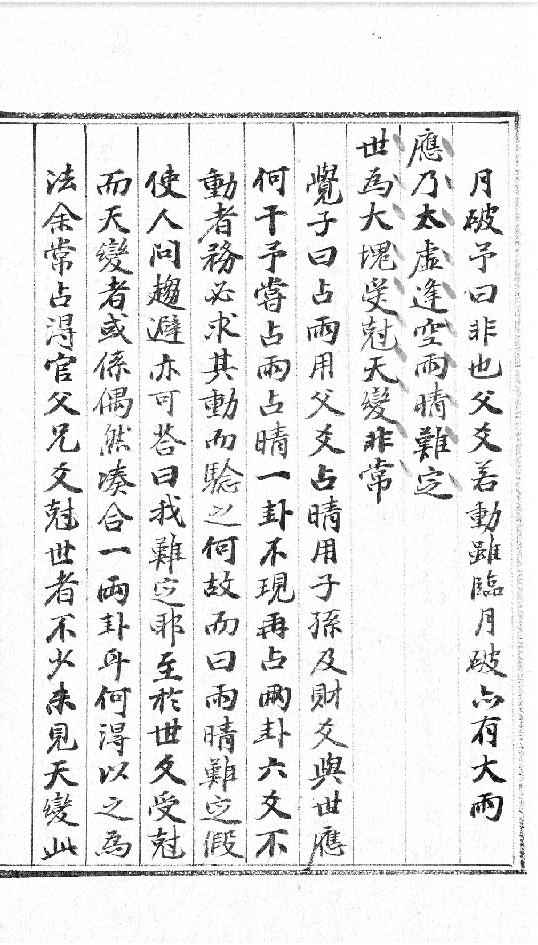 月破予曰非也父爻若動雖臨月破亦有大雨
應乃太虛逢空雨晴難定
世為大塊受尅天變非常
覺子曰占雨用父爻占晴用子孫及財爻與世應
何干予嘗占雨占晴一卦不現再占兩卦六爻不
動者務必求其動而驗之何故而曰雨晴難定假
使人問趨避亦可荅曰我難定耶至於世爻受尅
而天變者或係偶然凑合一兩卦耳何得以之為
法余常占得官父兄爻尅世者不少未見天變此